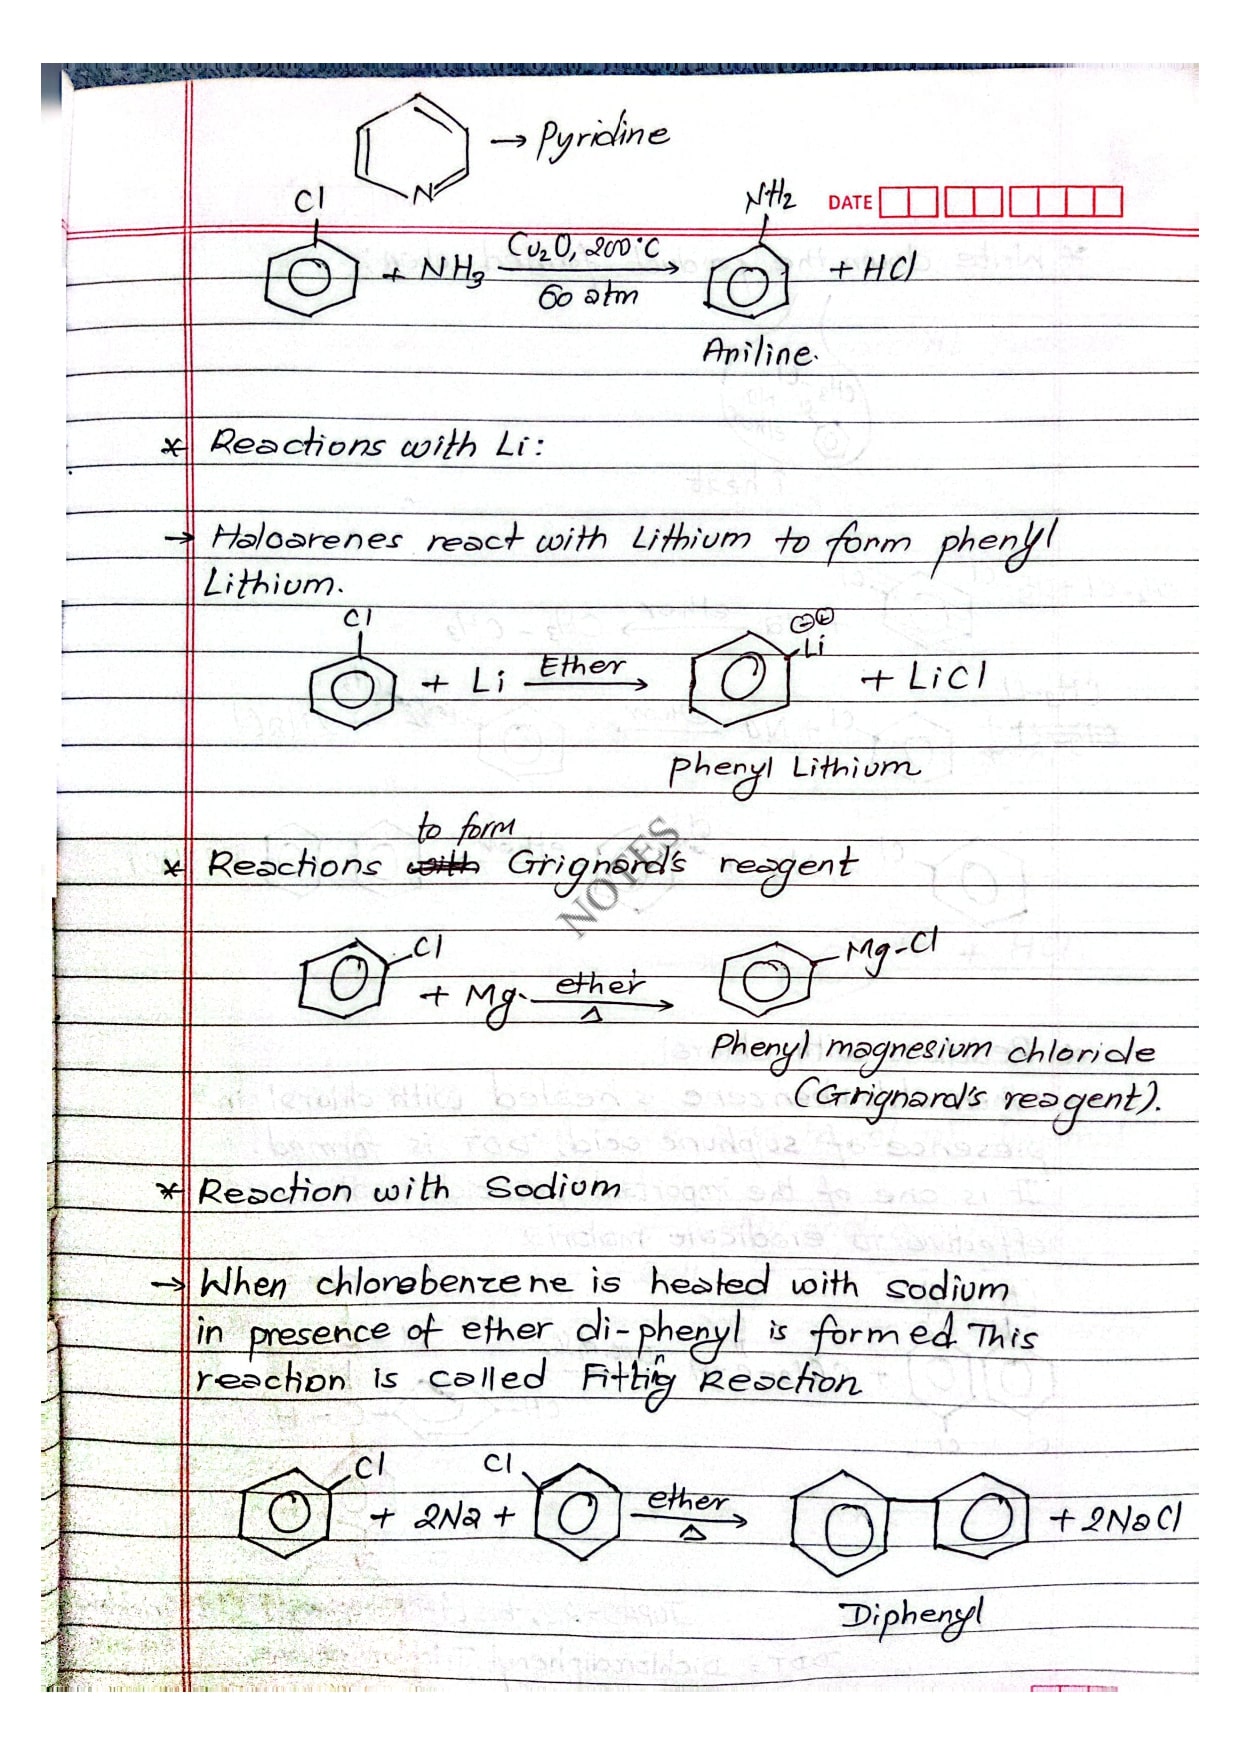 → Pyridine
N
DATE
Cl NH₂
+ NH₃ Cu₂O, 200°C 60 atm → + HCl
Aniline.
* Reactions with Li:
→ Haloarenes react with Lithium to form phenyl
Lithium.
Cl ⊖⊕
+ Li Ether → Li + LiCl
phenyl Lithium
to form
* Reactions with Grignard's reagent
NOTES
Cl + Mg. ether Δ → Mg-Cl
Phenyl magnesium chloride
(Grignard's reagent).
* Reaction with Sodium
→ When chlorobenzene is heated with sodium
in presence of ether di-phenyl is formed This
reaction is called Fitting Reaction
Cl + 2Na + Cl ether Δ → + 2NaCl
Diphenyl